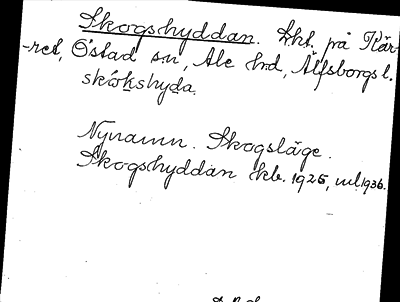 Skogshyddan. Lht. på Kär-
-ret, Östad sn, Ale hd, Älfsborgs l.
skókshyda.
Nynamn. Skogsläge.
Skogshyddan kb. 1925, ml. 1936.